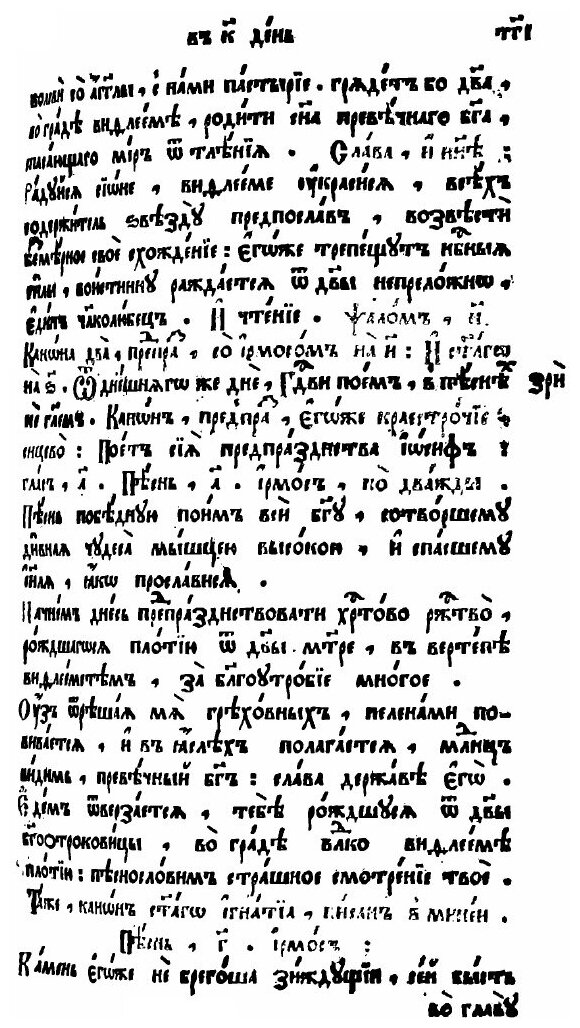 въ к҃ де́нь тг҃і
волсвѝ со а҆́гг҃лы, с на́ми па́стырїе. гряде́тъ бо дв҃а,
во гра́дѣ виѳлее́мѣ, роди́ти сн҃а превѣ́чнаго бг҃а,
ми́ръ ѿ тлѣ́нїѧ. Сла́ва, и҆ нн҃ѣ:
Ра́дуйсѧ сїѡ́не, виѳлее́ме ᲂу҆краси́сѧ, всѣ́хъ
содержи́тель ѕвѣзду̀ предпосла́въ, возвѣстѝ
безмѣ́рное своѐ схожде́нїе: є҆гѡ́же трепе́щутъ нб҃ныѧ
си҃лы, вои́стинну ражда́етсѧ ѿ дв҃ы непрело́жнѡ,
є҆ди́нъ чл҃колю́бецъ. И҆ чте́нїе. ѱало́мъ, н҃.
Канѡ́на два̀, пре́пра, со і҆рмосо́мъ на и҃: И҆ ст҃а́гѡ
на ѕ҃. Ѿ дне́шнѧгѡ же днѐ, Гд҃ви пое́мъ, в пѣ́снѣхъ зрѝ
не гл҃емъ. Канѡ́нъ, предпра́, є҆гѡ́же краестро́чїе
сицево̀: Пое́тъ сїѧ̀ предпра́зднства і҆ѡ́сифъ:
гла́съ, а҃. Пѣ́снь, а҃. і҆рмо́съ, по два́жды.
Пѣ́снь побѣ́дную пои́мъ всѝ бг҃у, сотво́ршему
ди́внаѧ чудеса̀ мы́шцею высо́кою, и҆ спа́сшему
і҆и҃лѧ, ꙗ҆́кѡ просла́висѧ.
Начне́мъ дне́сь препра́зднствовати хрⷭ҇то́во ржⷭ҇тво̀,
ро́ждшагѡсѧ пло́тїю ѿ дв҃ы мт҃ре, въ верте́пѣ
виѳлее́мстѣмъ, за бл҃гоутро́бїе мно́гое.
Оу҆́зъ ѿрѣша́ѧ мѧ̀ грѣхо́вныхъ, пелена́ми по-
вива́етсѧ, и҆ въ ꙗ҆́слехъ полага́етсѧ, младе́нцъ
ви́димь, превѣ́чный бг҃ъ: сла́ва держа́вѣ є҆гѡ̀.
Є҆де́мъ ѿверза́етсѧ, тебѣ̀ ро́ждшусѧ ѿ дв҃ы
бг҃оотрокови́цы, во гра́дѣ влⷣко виѳлее́мѣ
пло́тїи: пѣсносло́вимъ стра́шное смотре́нїе твоѐ.
Та́же, канѡ́нъ ст҃а́гѡ і҆гна́тїа, пи́санъ в мине́и.
Пѣ́снь, г҃. і҆рмо́съ:
Ка́мень є҆гѡ́же не брего́ша зи́ждущїи, се́й бы́сть
во главу̀